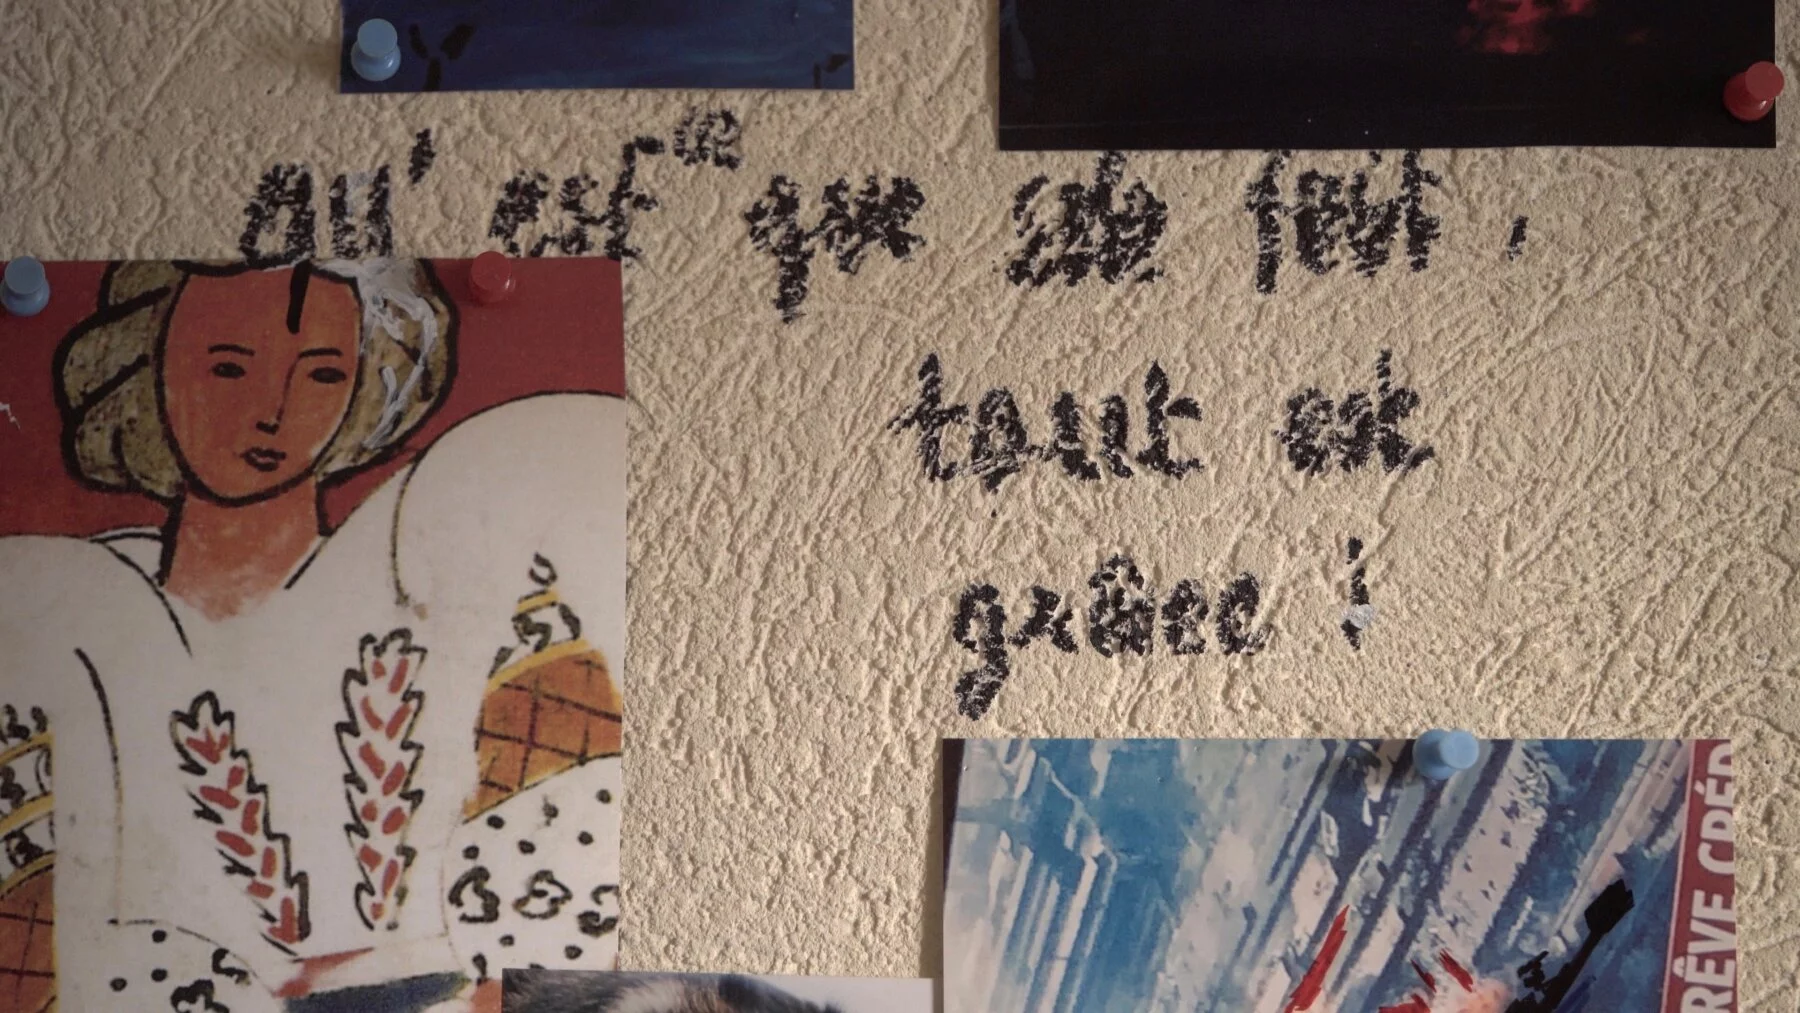 Qu'est ce que cela fait,
tout est
grâce !
RÊVE CRÉD